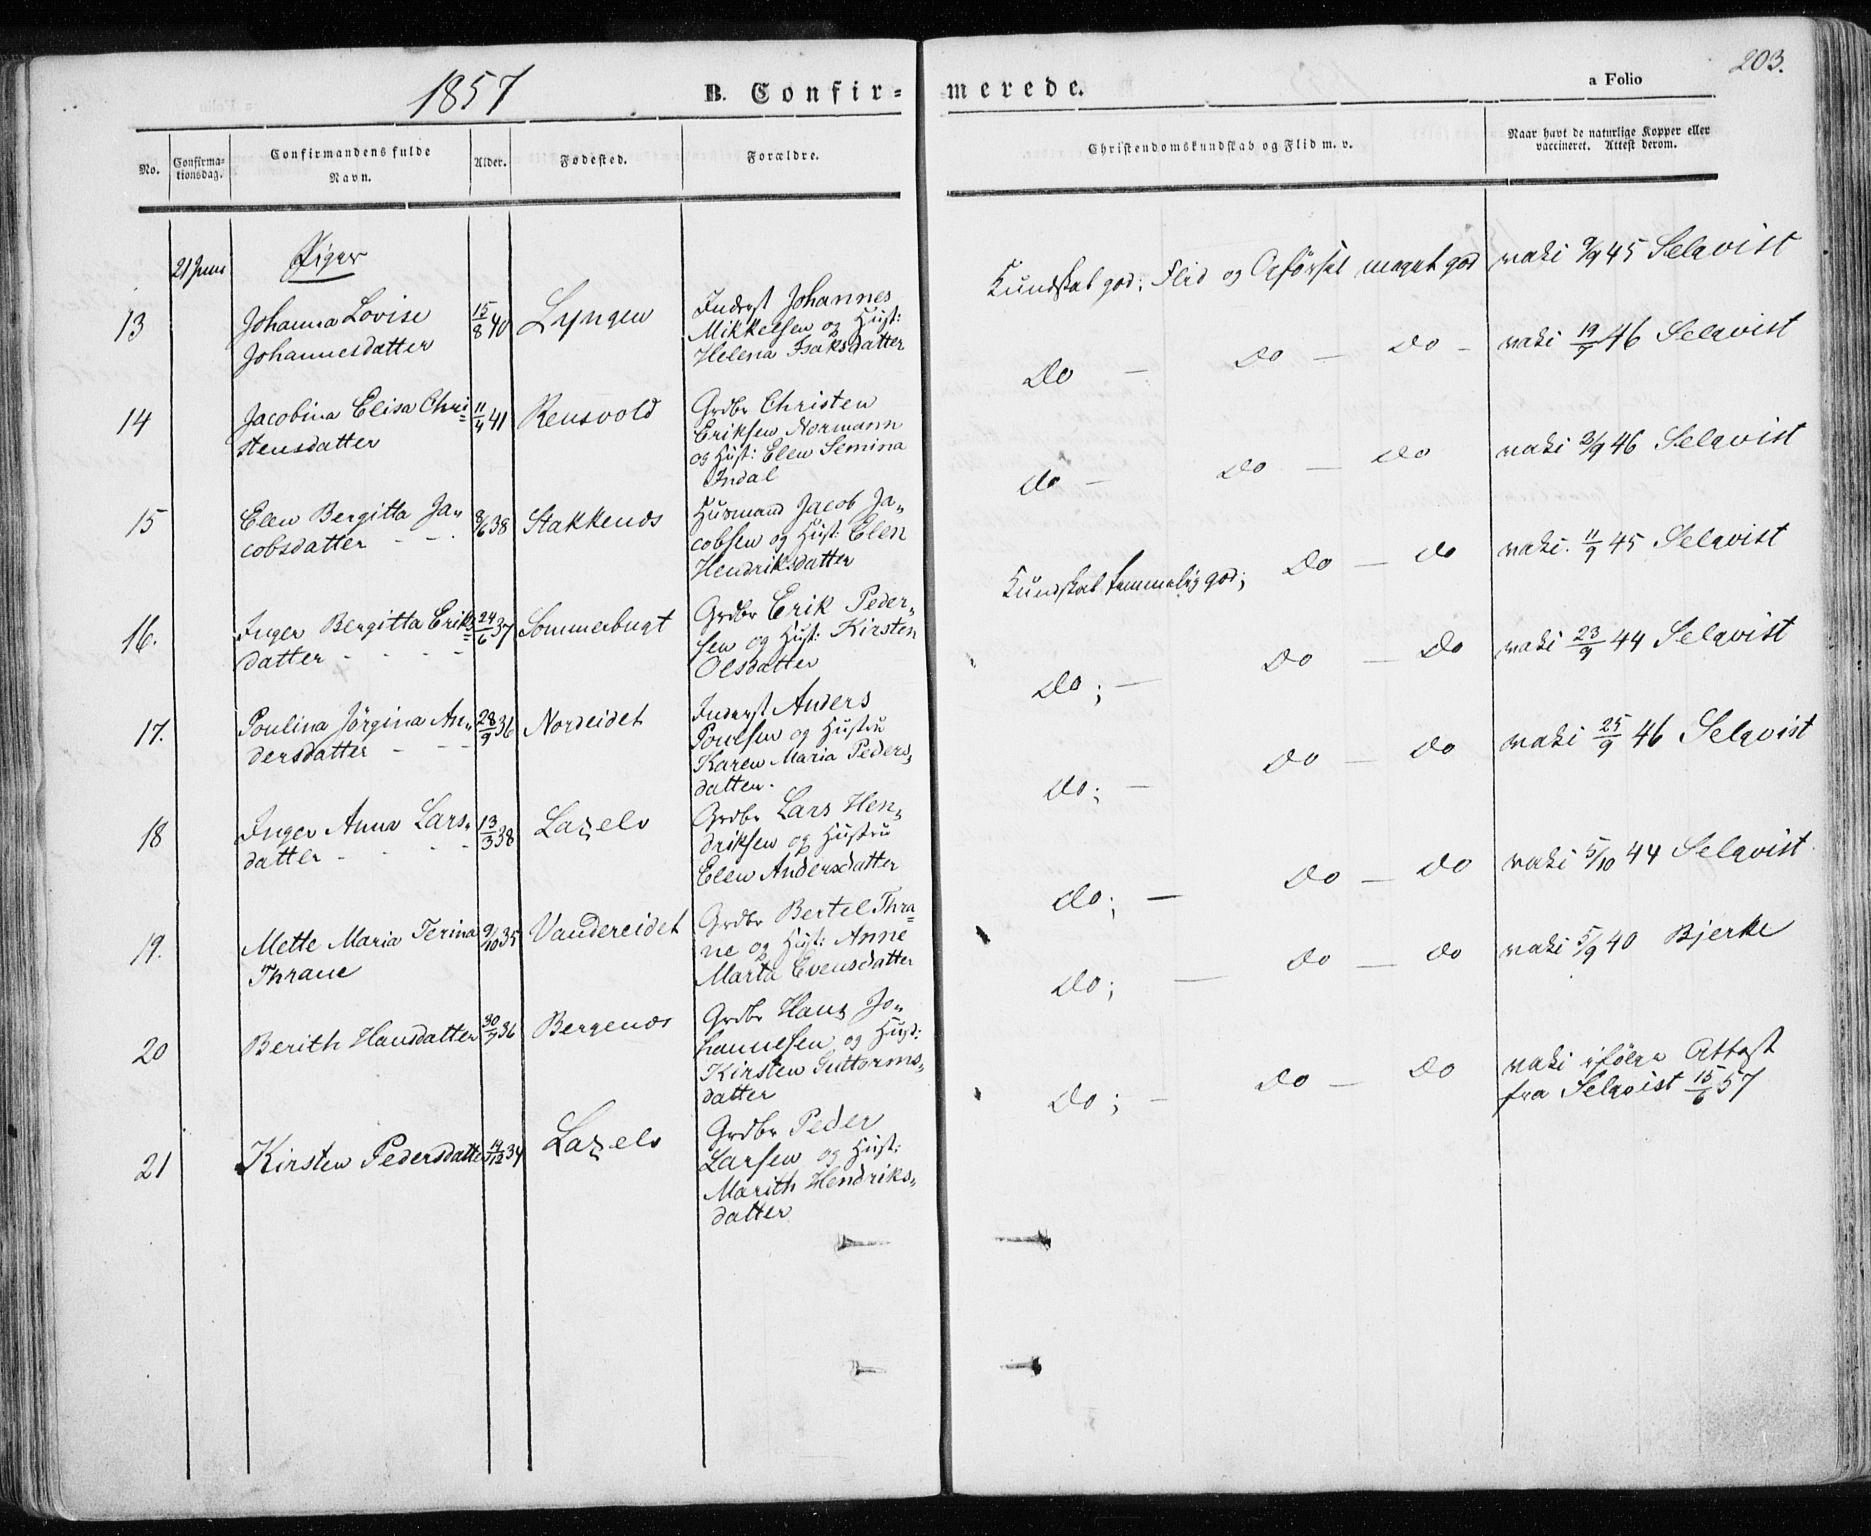 1857
B. Confirmerede.
a Folio
203.
No.
Confirmationsdag.
Confirmandens fulde Navn.
Alder.
Fødested.
Forældre.
Christendomskundskab og Flid m. v.
Naar havt de naturlige Kopper eller vaccineret. Attest derom.
21 Juni
Piger
13
Johanna Lovise
Johannesdatter
15/8 40
Lyngen
Inderst Johannes
Mikkelsen og Hust:
Helena Isaksdatter
Kundskab god; Flid og Opførsel meget god
vaki 9/9 45 Selqvist
14
Jacobina Elisa Chri=
stensdatter
11/4 41
Rensvold
Grdbr Christen
Eriksen Normann
og Hust: Elen Semina
Indal
Do — Do — Do —
vaki 19/7 46 Selqvist
15
Elen Bergitta Ja„
cobsdatter - - .
8/6 38
Stakkenæs
Husmand Jacob Ja„
cobsen og Hust: Elen
Hendriksdatter
do — Do — Do
vaki 2/9 46 Selqvist
16.
Inger Bergitta Eriks=
datter - - - -
24/6 37
Sommerbugt
Grdbr Erik Peder„
sen og Hust: Kirsten
Olsdatter
Kundskab temmelig god; Do — do
vaki. 11/9 45 Selqvist
17.
Poulina Jörgina An„
dersdatter - - -
28/9 36
Nordeidet
Inderst Anders
Poulsen og Hustru
Karen Maria Peders„
datter.
Do; — Do — Do
vaki 23/9 44 Selqvist
18
Inger Anna Lars„
datter - - - -
13/3 38
Lazelv
Grdbr Lars Hen„
driksen og Hustru
Elen Andersdatter
do; — Do — Do
vaki 25/9 46 Selqvist
19.
Mette Maria Terina
Thrane
9/10 35
Vandereidet
Grdbr Bertel Thra=
ne og Hust: Anne
Marta Evensdatter
do; — Do — Do
vaki 5/10 44 Selqvist
20
Berith Hansdatter
30/7 36
Bergenæs
Grdbr Hans Jo„
hannesen og Hust:
Kirsten Guttorms„
datter
Do; — Do — Do
vaki 5/9 40 Bjerke
21
Kirsten Pedersdatter
14/12 34
Lazelv
Grdbr Peder
Larsen og Hust:
Marith Hendriks„
datter
Do; — Do — Do
vaki ifölge Attest
fra Selqvist 15/6 57